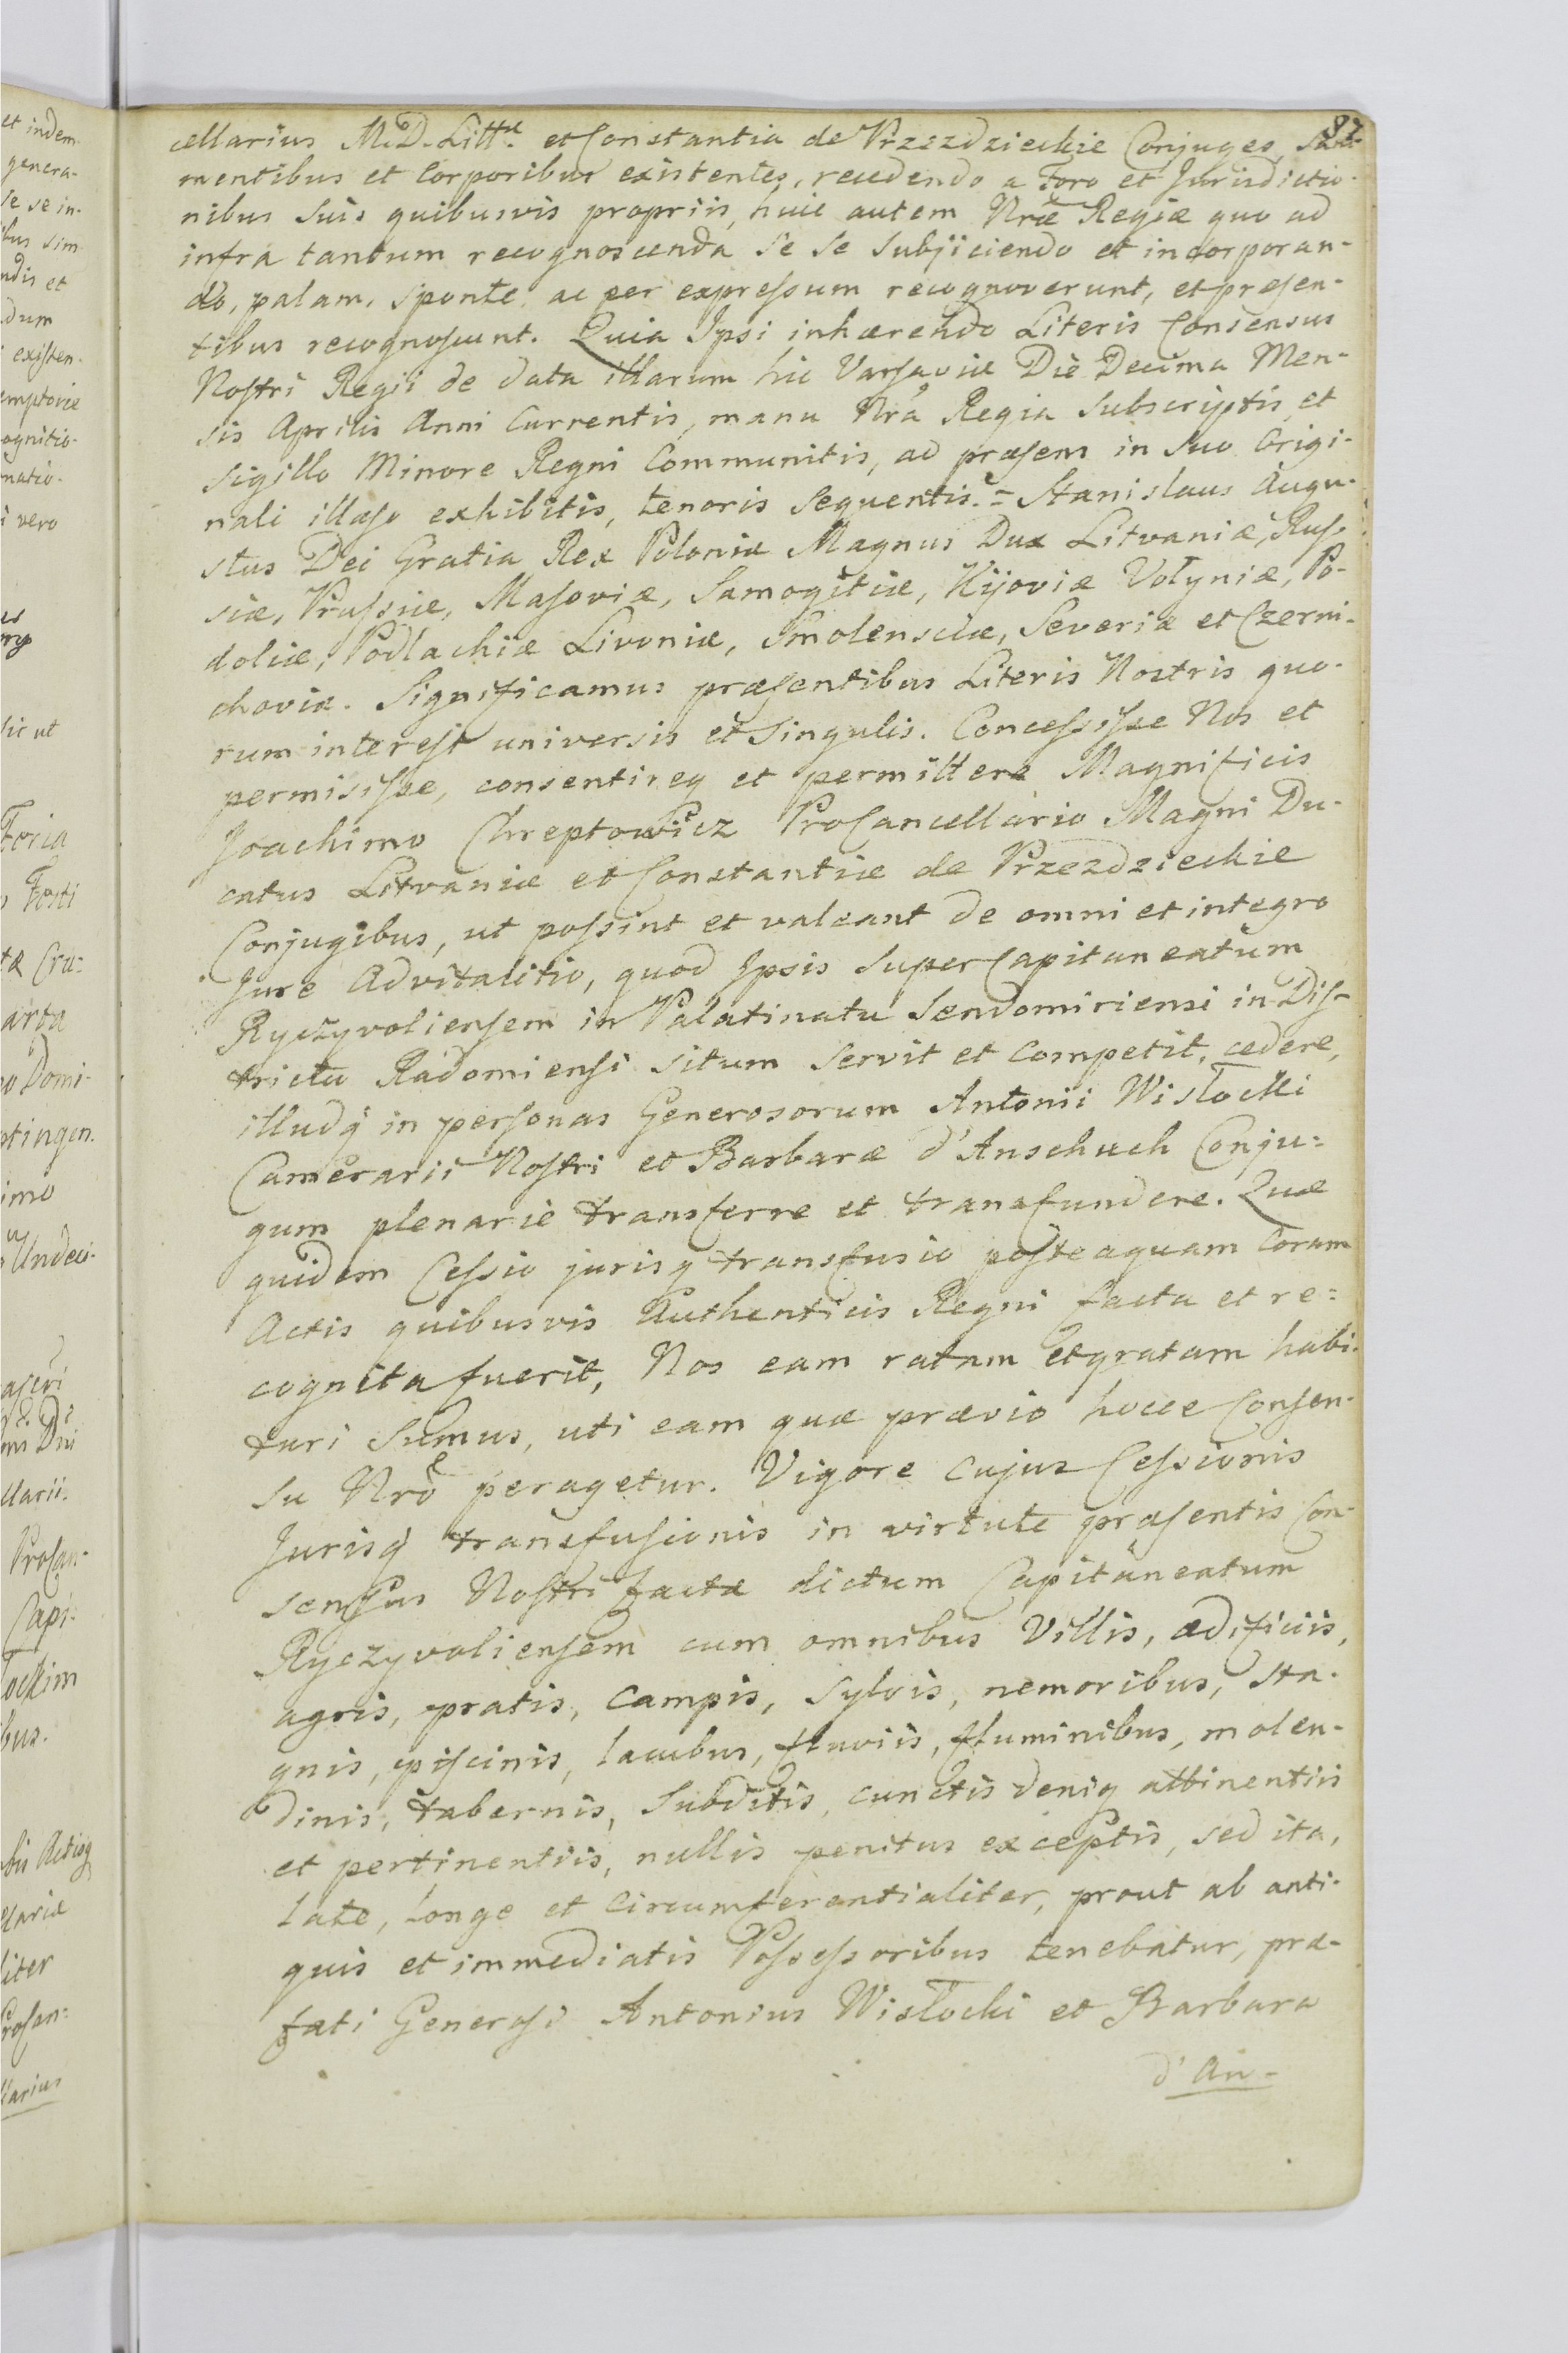 87
cellarius M. D. Littæ et Constantia de Przezdzieckie Conjuges, Sani
mentibus et Corporibus existentes, recedendo a Foro et Jurisdictio-
nibus Suis quibusvis propriis, huic autem Nræ Regiæ quo ad
infra tantum recognoscenda Se Se Subjiciendo et incorporan-
do, palam, sponte, ac per expressum recognoverunt, et præsen-
tibus recognoscunt. Quia Ipsi inhærendo Literis Consensus
Nostri Regii de data illarum hic Varsaviæ Die Decima Men-
sis Aprilis Anni Currentis, manu Nrâ Regia Subscriptis et
Sigillo Minore Regni Communitis, ad præsens in Suo Origi-
nali illæso exhibitis, tenoris Sequentis. = Stanislaus Augu-
stus Dei Gratia Rex Poloniæ Magnus Dux Litvaniæ, Rus-
siæ, Prussiæ, Masoviæ, Samogitiæ, Kijoviæ Volyniæ, Po-
doliæ, Podlachiæ Livoniæ, Smolensciæ, Severiæ et Czerni-
choviæ. Significamus præsentibus Literis Nostris quo-
rum interest universis et Singulis. Concessisse Nos et
permisisse, consentireq et permittere Magnificis
Joachimo Chreptowicz ProCancellario Magni Du-
catus Litvaniæ et Constantiæ de Przezdzieckie
Conjugibus, ut possint et valeant de omni et integro
Jure Advitalitio, quod Ipsis Super Capitaneatum
Ryczyvoliensem in Palatinatu Sendomiriensi in Dis-
trictu Radomiensi situm Servit et Competit, cedere,
illudq in personas Generosorum Antonii Wisłocki
Camerarii Nostri et Barbaræ d'Anschuch Conju=
gum plenarie transferre et transfundere. Quæ
quidem Cessio jurisq transfusio posteaquam Coram
Actis quibusvis Authenticis Regni facta et re=
cognita fuerit, Nos eam ratam et gratam habi-
turi Sumus, uti eam quæ prævio hocce Consen-
su Nro peragetur. Vigore Cujus Cessionis
Jurisq transfusionis in virtute præsentis Con-
sensus Nostri factæ dictum Capitaneatum
Ryczyvoliensem cum omnibus Villis, ædificiis,
agris, pratis, Campis, Sylvis, nemoribus, sta-
gnis, piscinis, lacubus, fluviis, fluminibus, molen-
dinis, tabernis, Subditis, cunctis deniq attinentiis
et pertinentiis, nullis penitus exceptis, sed ita,
late, Longe et Circumferentialiter, prout ab anti-
quis et immediatis Possessoribus tenebatur, præ-
fati Generosi Antonius Wisłocki et Barbara
d'An-